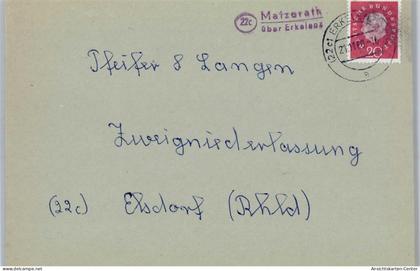 (22c) Matzerath
über Erkelenz
(22c) ERKE
DEUTSCHE BUNDESPOST
20
Pfeifer & Langen
Zweigniederlassung
(22c) Elsdorf (Rhld)
Ansichtskarten-Center